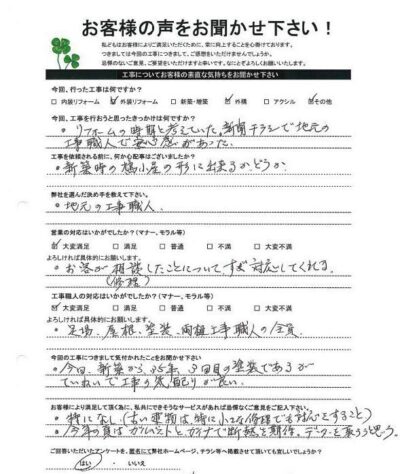 お客様の声をお聞かせ下さい！
私どもはお客様によりご満足いただくために、常に向上することを心掛けております。
つきましては今回の工事につきまして、ご感想をいただけませんでしょうか。
忌憚のないご意見、ご要望をいただけますと幸いです。なにとぞよろしくお願いいたします。
工事についてお客様の素直な気持ちをお聞かせ下さい
今回、行った工事は何ですか？
□ 内装リフォーム ☑ 外装リフォーム □ 新築・増築 ☑ 外構 □ アクシル ☑ その他
今回、工事を行おうと思ったきっかけは何ですか？
・リフォームの時期と考えていた。新聞チラシで地元の
工事職人で安心感があった。
工事を依頼される前に、何か心配事はございましたか？
・新築時の 小屋の形に出来るかどうか
弊社を選んだ決め手を教えて下さい。
・地元の工事職人。
営業の対応はいかがでしたか？（マナー、モラル等）
☑ 大変満足 □ 満足 □ 普通 □ 不満 □ 大変不満
よろしければ具体的にお願いします。
・お客が相談したことについてすぐ対応してくれる。
（修理）
工事職人の対応はいかがでしたか？（マナー、モラル等）
☑ 大変満足 □ 満足 □ 普通 □ 不満 □ 大変不満
よろしければ具体的にお願いします。
・足場、屋根、塗装、雨樋工事職人の全員
今回の工事につきまして気付かれたことをお聞かせ下さい
・今回、新築から35年、3回目の塗装であるが
ていねいで工事の気配りが良い。
お客様により満足して頂く為に、私共にできそうなサービスがあれば忌憚なくご意見をご記入下さい。
・特になし（古い建物は、特に小さな修理でも対応とすること）
・今年の夏は で断熱を期待。データーを取ろうと思う。
ご回答いただいたアンケートを、匿名にて弊社ホームページ、チラシ等へ掲載させて頂いても宜しいでしょうか？
はい ・ いいえ